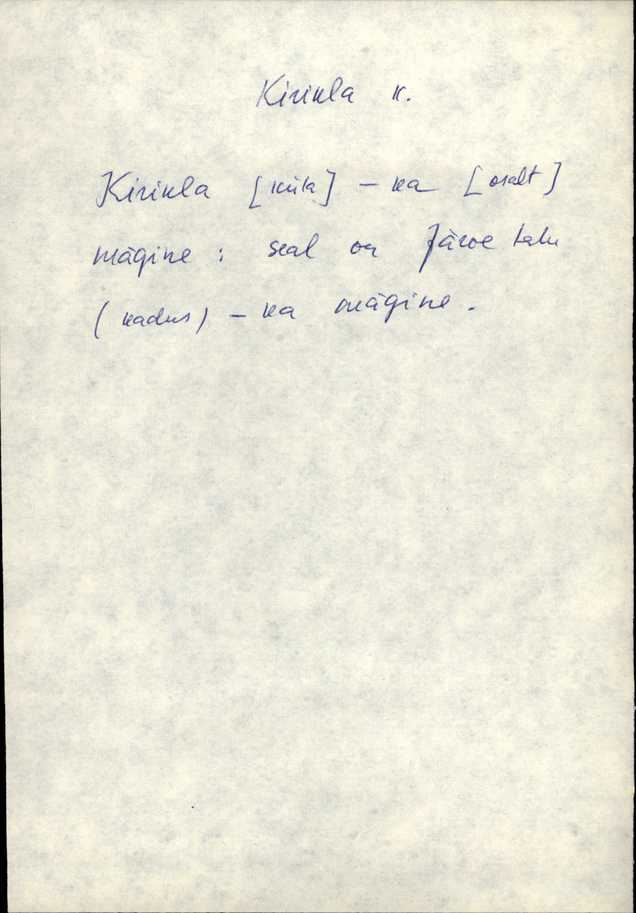 Kirikla k.
Kirikla [küla] – ka [osalt]
mägine : seal on Järve talu
(kadus) – ka mägine.